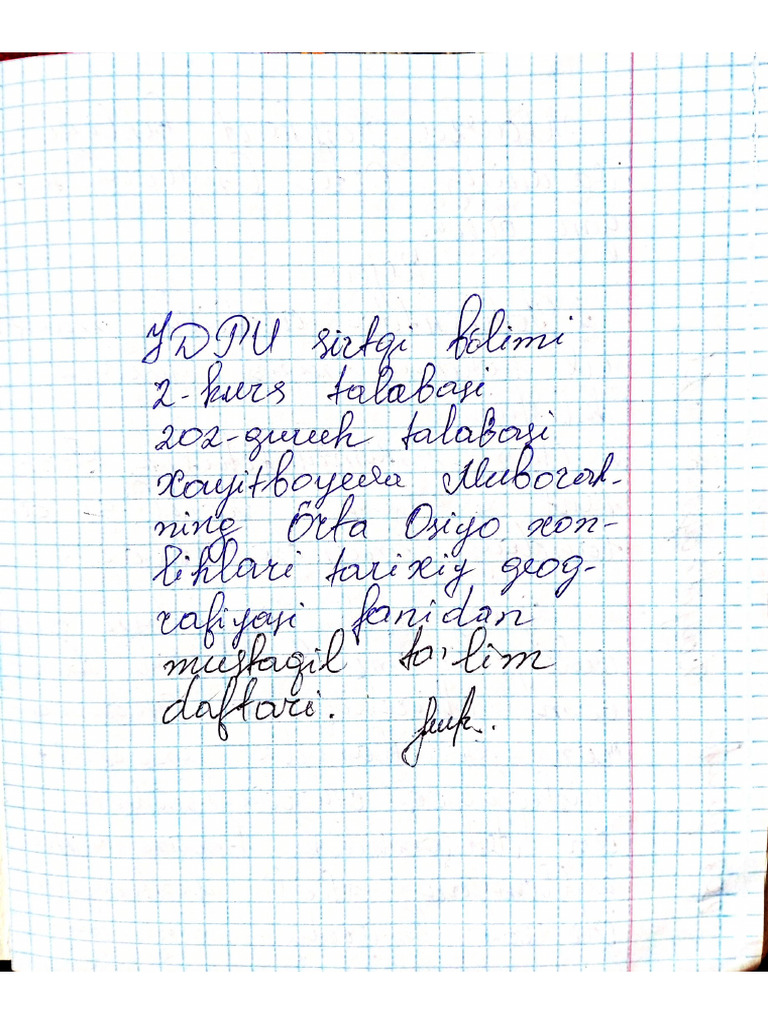 JDPU sirtqi bölimi
2-kurs talabasi
202-guruh talabasi
Xayitboyeva Muborak-
ning Örta Osiyo xon-
liklari tarixiy geog-
rafiyasi fanidan
mustaqil ta'lim
daftari.